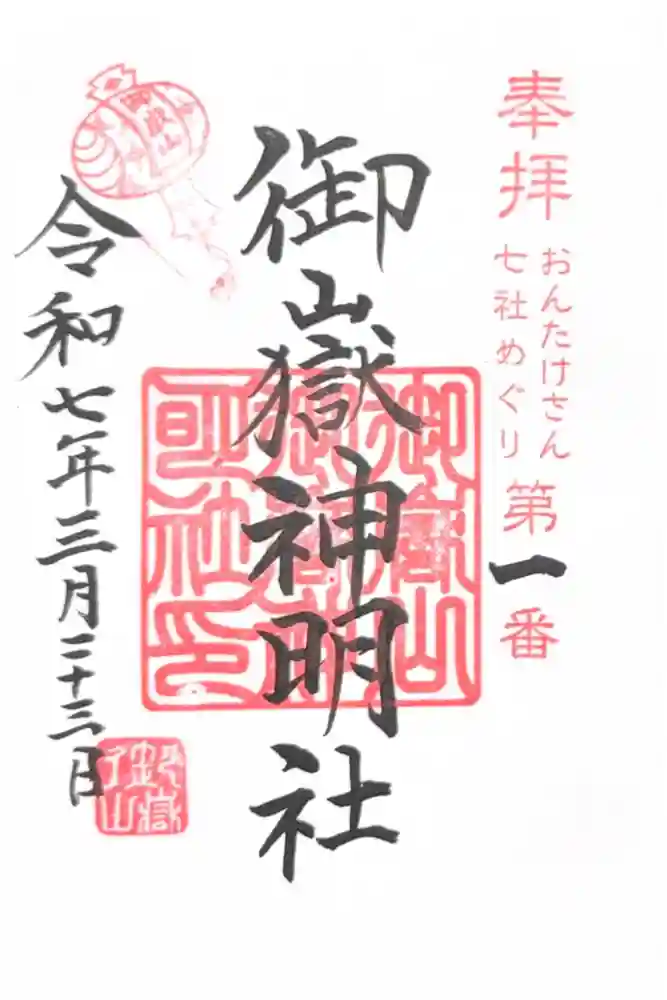 奉拝
おんたけさん
七社めぐり
第一番
御山嶽神明社
令和七年三月二十三日